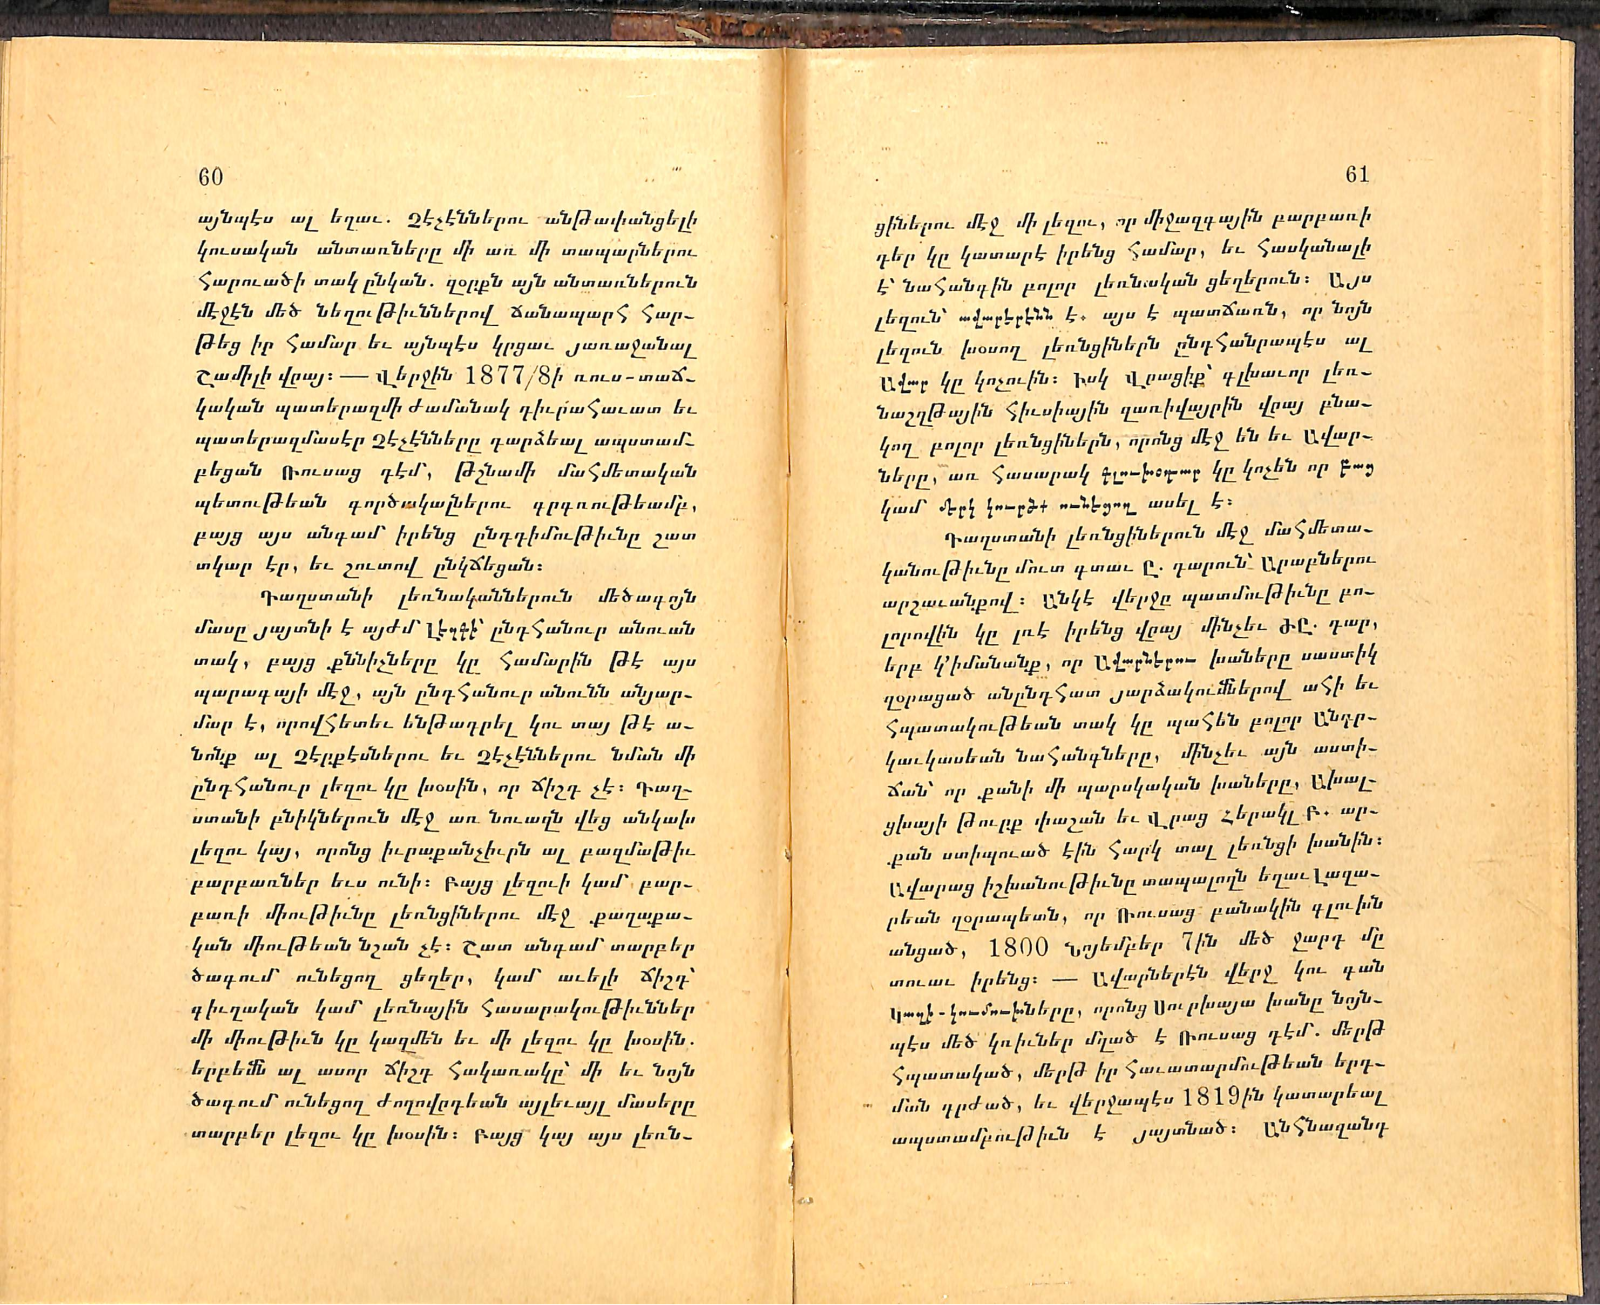 60
այնպէս ալ եղաւ. Չէչէններու անթափանցելի
կուսական անտառները մի առ մի տապարներու
հարուածի տակ ընկան. զօրքն այն անտառներուն
մէջէն մեծ նեղութիւններով ճանապարհ հար-
թեց իր համար եւ այնպէս կրցաւ յառաջանալ
Շամիլի վրայ։ — Վերջին 1877/8ի ռուս-տաճ-
կական պատերազմի ժամանակ դիւրահաւատ եւ
պատերազմասէր Չէչէնները դարձեալ ապստամ-
բեցան Ռուսաց դէմ, թշնամի մահմետական
պետութեան գործակալներու գրգռութեամբ,
բայց այս անգամ իրենց ընդդիմութիւնը շատ
տկար էր, եւ շուտով ընկճեցան։
Դաղստանի լեռնականներուն մեծագոյն
մասը յայտնի է այժմ Լէզգի՝ ընդհանուր անուան
տակ, բայց քննիչները կը համարին թէ այս
պարագայի մէջ, այն ընդհանուր անունն անյար-
մար է, որովհետեւ ենթադրել կու տայ թէ ա-
նոնք ալ Չէրքէսներու եւ Չէչէններու նման մի
ընդհանուր լեզու կը խօսին, որ ճիշդ չէ։ Դաղ-
ստանի բնիկներուն մէջ առ նուազն վեց անկախ
լեզու կայ, որոնց իւրաքանչիւրն ալ բազմաթիւ
բարբառներ եւս ունի։ Բայց լեզուի կամ բար-
բառի միութիւնը լեռնցիներու մէջ քաղաքա-
կան միութեան նշան չէ։ Շատ անգամ տարբեր
ծագում ունեցող ցեղեր, կամ աւելի ճիշդ՝
գիւղական կամ լեռնային հասարակութիւններ
մի միութիւն կը կազմեն եւ մի լեզու կը խօսին.
երբեմն ալ ասոր ճիշդ հակառակը՝ մի եւ նոյն
ծագում ունեցող ժողովրդեան այլեւայլ մասերը
տարբեր լեզու կը խօսին։ Բայց կայ այս լեռն-
61
ցիներու մէջ մի լեզու, որ միջազգային բարբառի
դեր կը կատարէ իրենց համար, եւ հասկանալի
է՝ նահանգին բոլոր լեռնական ցեղերուն։ Այս
լեզուն՝ աւարերէնն է. այս է պատճառն, որ նոյն
լեզուն խօսող լեռնցիներն ընդհանրապէս ալ
Աւար կը կոչուին։ Իսկ Վրացիք՝ գլխաւոր լեռ-
նաշղթային հիւսիային զառիվայրին վրայ բնա-
կող բոլոր լեռնցիներն, որոնց մէջ են եւ Աւար-
ները, առ հասարակ գլուխօդար կը կոչեն որ բաց
կամ մերկ կուրծք ունեցող ասել է։
Դաղստանի լեռնցիներուն մէջ մահմետա-
կանութիւնը մուտ գտաւ Ը. դարուն՝ Արաբներու
արշաւանքով։ Անկէ վերջը պատմութիւնը բո-
լորովին կը լռէ իրենց վրայ մինչեւ ԺԸ. դար,
երբ կ՚իմանանք, որ Աւարներու խաները սաստիկ
զօրացած անընդհատ յարձակումներով ահի եւ
հպատակութեան տակ կը պահեն բոլոր Անդր-
կաւկասեան նահանգները, մինչեւ այն աստի-
ճան՝ որ քանի մի պարսկական խաները, Ախալ-
ցխայի թուրք փաշան եւ Վրաց Հերակլ Բ. ար-
քան ստիպուած էին հարկ տալ լեռնցի խանին։
Աւարաց իշխանութիւնը տապալողն եղաւ Լազա-
րեան զօրապետն, որ Ռուսաց բանակին գլուխն
անցած, 1800 Նոյեմբեր 7ին մեծ ջարդ մը
տուաւ իրենց։ — Աւարներէն վերջ կու գան
Կազի-կումուխները, որոնց Սուրխայա խանը նոյն-
պէս մեծ կռիւներ մղած է Ռուսաց դէմ. մերթ
հպատակած, մերթ իր հաւատարմութեան երդ-
ման դրժած, եւ վերջապէս 1819ին կատարեալ
ապստամբութիւն է յայտնած։ Անհնազանդ